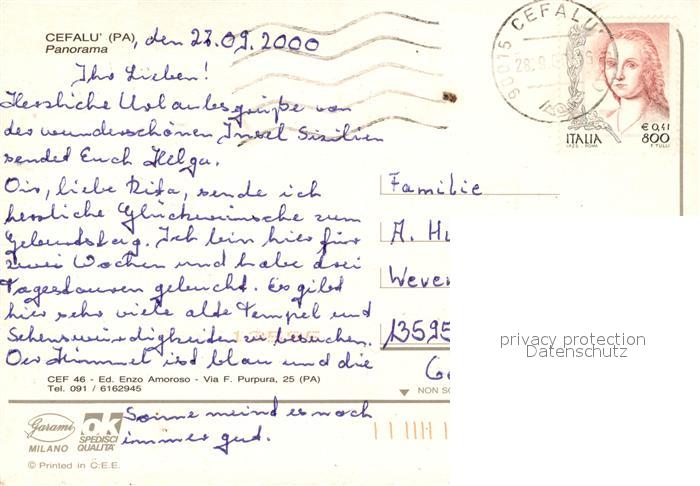 CEFALU' (PA), den 27.09.2000
Panorama
Ihr Lieben!
Herzliche Urlaubsgrüße von
der wunderschönen Insel Sizilien
sendet Euch Helga.
Dir, liebe Rita, sende ich
herzliche Glückwünsche zum
Geburtstag. Ich bin hier für
zwei Wochen und habe drei
Tagestouren gebucht. Es gibt
hier sehr viele alte Tempel und
Sehenswürdigkeiten zu besuchen.
Der Himmel ist blau und die
CEF 46 - Ed. Enzo Amoroso - Via F. Purpura, 25 (PA)
Tel. 091 / 6162945
Sonne meint es noch
immer gut.
Garami
MILANO
OK
SPEDISCI
QUALITA'
© Printed in C.E.E.
90015 CEFALU'
ITALIA
€ 0,41
800
I.P.Z.S. - ROMA
F. TULLI
Familie
A. Hu
Wever
13595
NON SC
privacy protection
Datenschutz